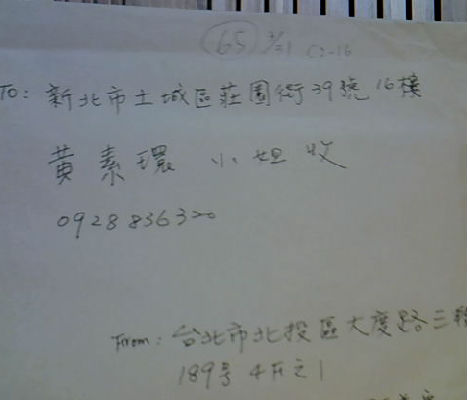 65 3/21 C2-16
To: 新北市土城區莊園街39號16樓
黃素環 小姐收
0928836320
From: 台北市北投區大度路三段
189号4F之1